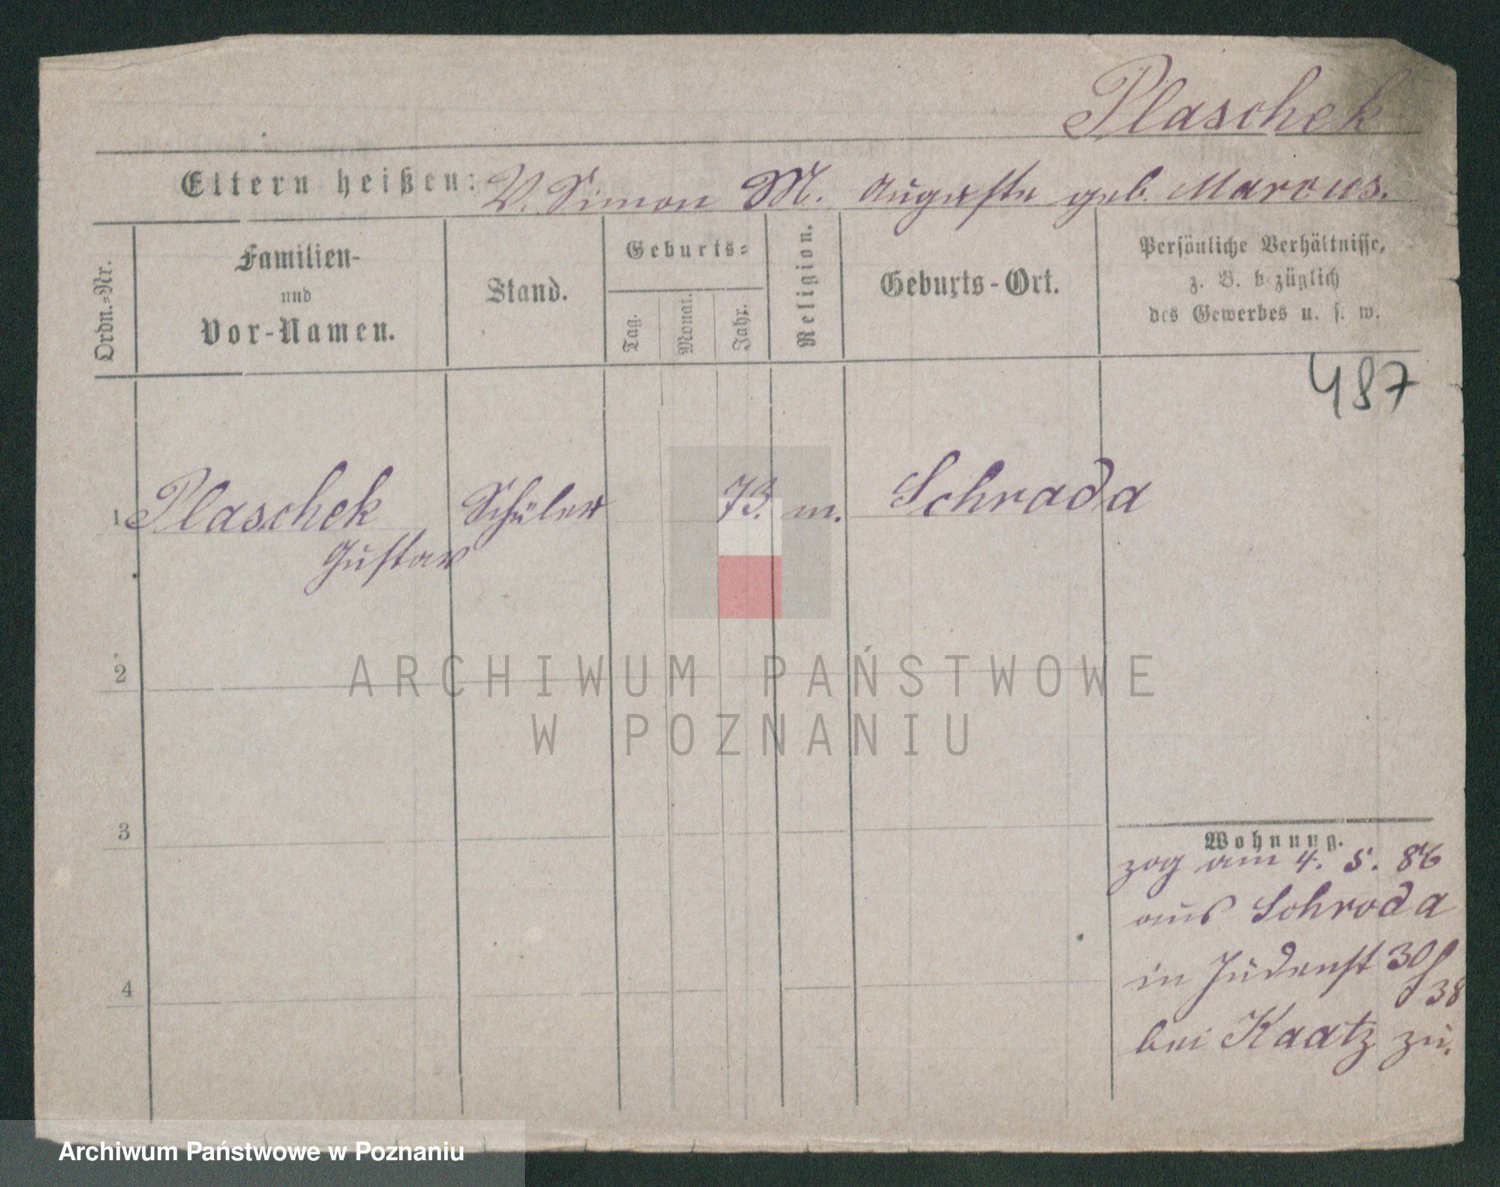 Plaschek
Eltern heißen: V. Simon M. Auguste geb. Marcus.
Ordn.-Nr.
Familien-
und
Vor-Namen.
Stand.
Geburts-
Tag.
Monat.
Jahr.
Religion.
Geburts-Ort.
Persönliche Verhältnisse,
z. B. bezüglich
des Gewerbes u. s. w.
487
1 Plaschek Schüler 73. m. Schrada
Gustav
ARCHIWUM PAŃSTWOWE
W POZNANIU
2
3
4
Wohnung.
zog am 4. 5. 86
aus Schroda
in Judenst 30/38
bei Kaatz zu.
Archiwum Państwowe w Poznaniu